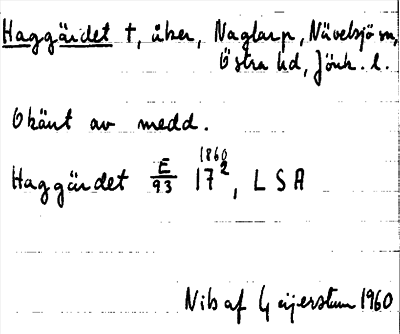 Haggärdet †, åker, Naglarp, Nävelsjö sn,
Östra hd, Jönk. l.
Okänt av medd.
1860
Haggärdet E/93 17², LSA
Nib af Geijerstam 1960